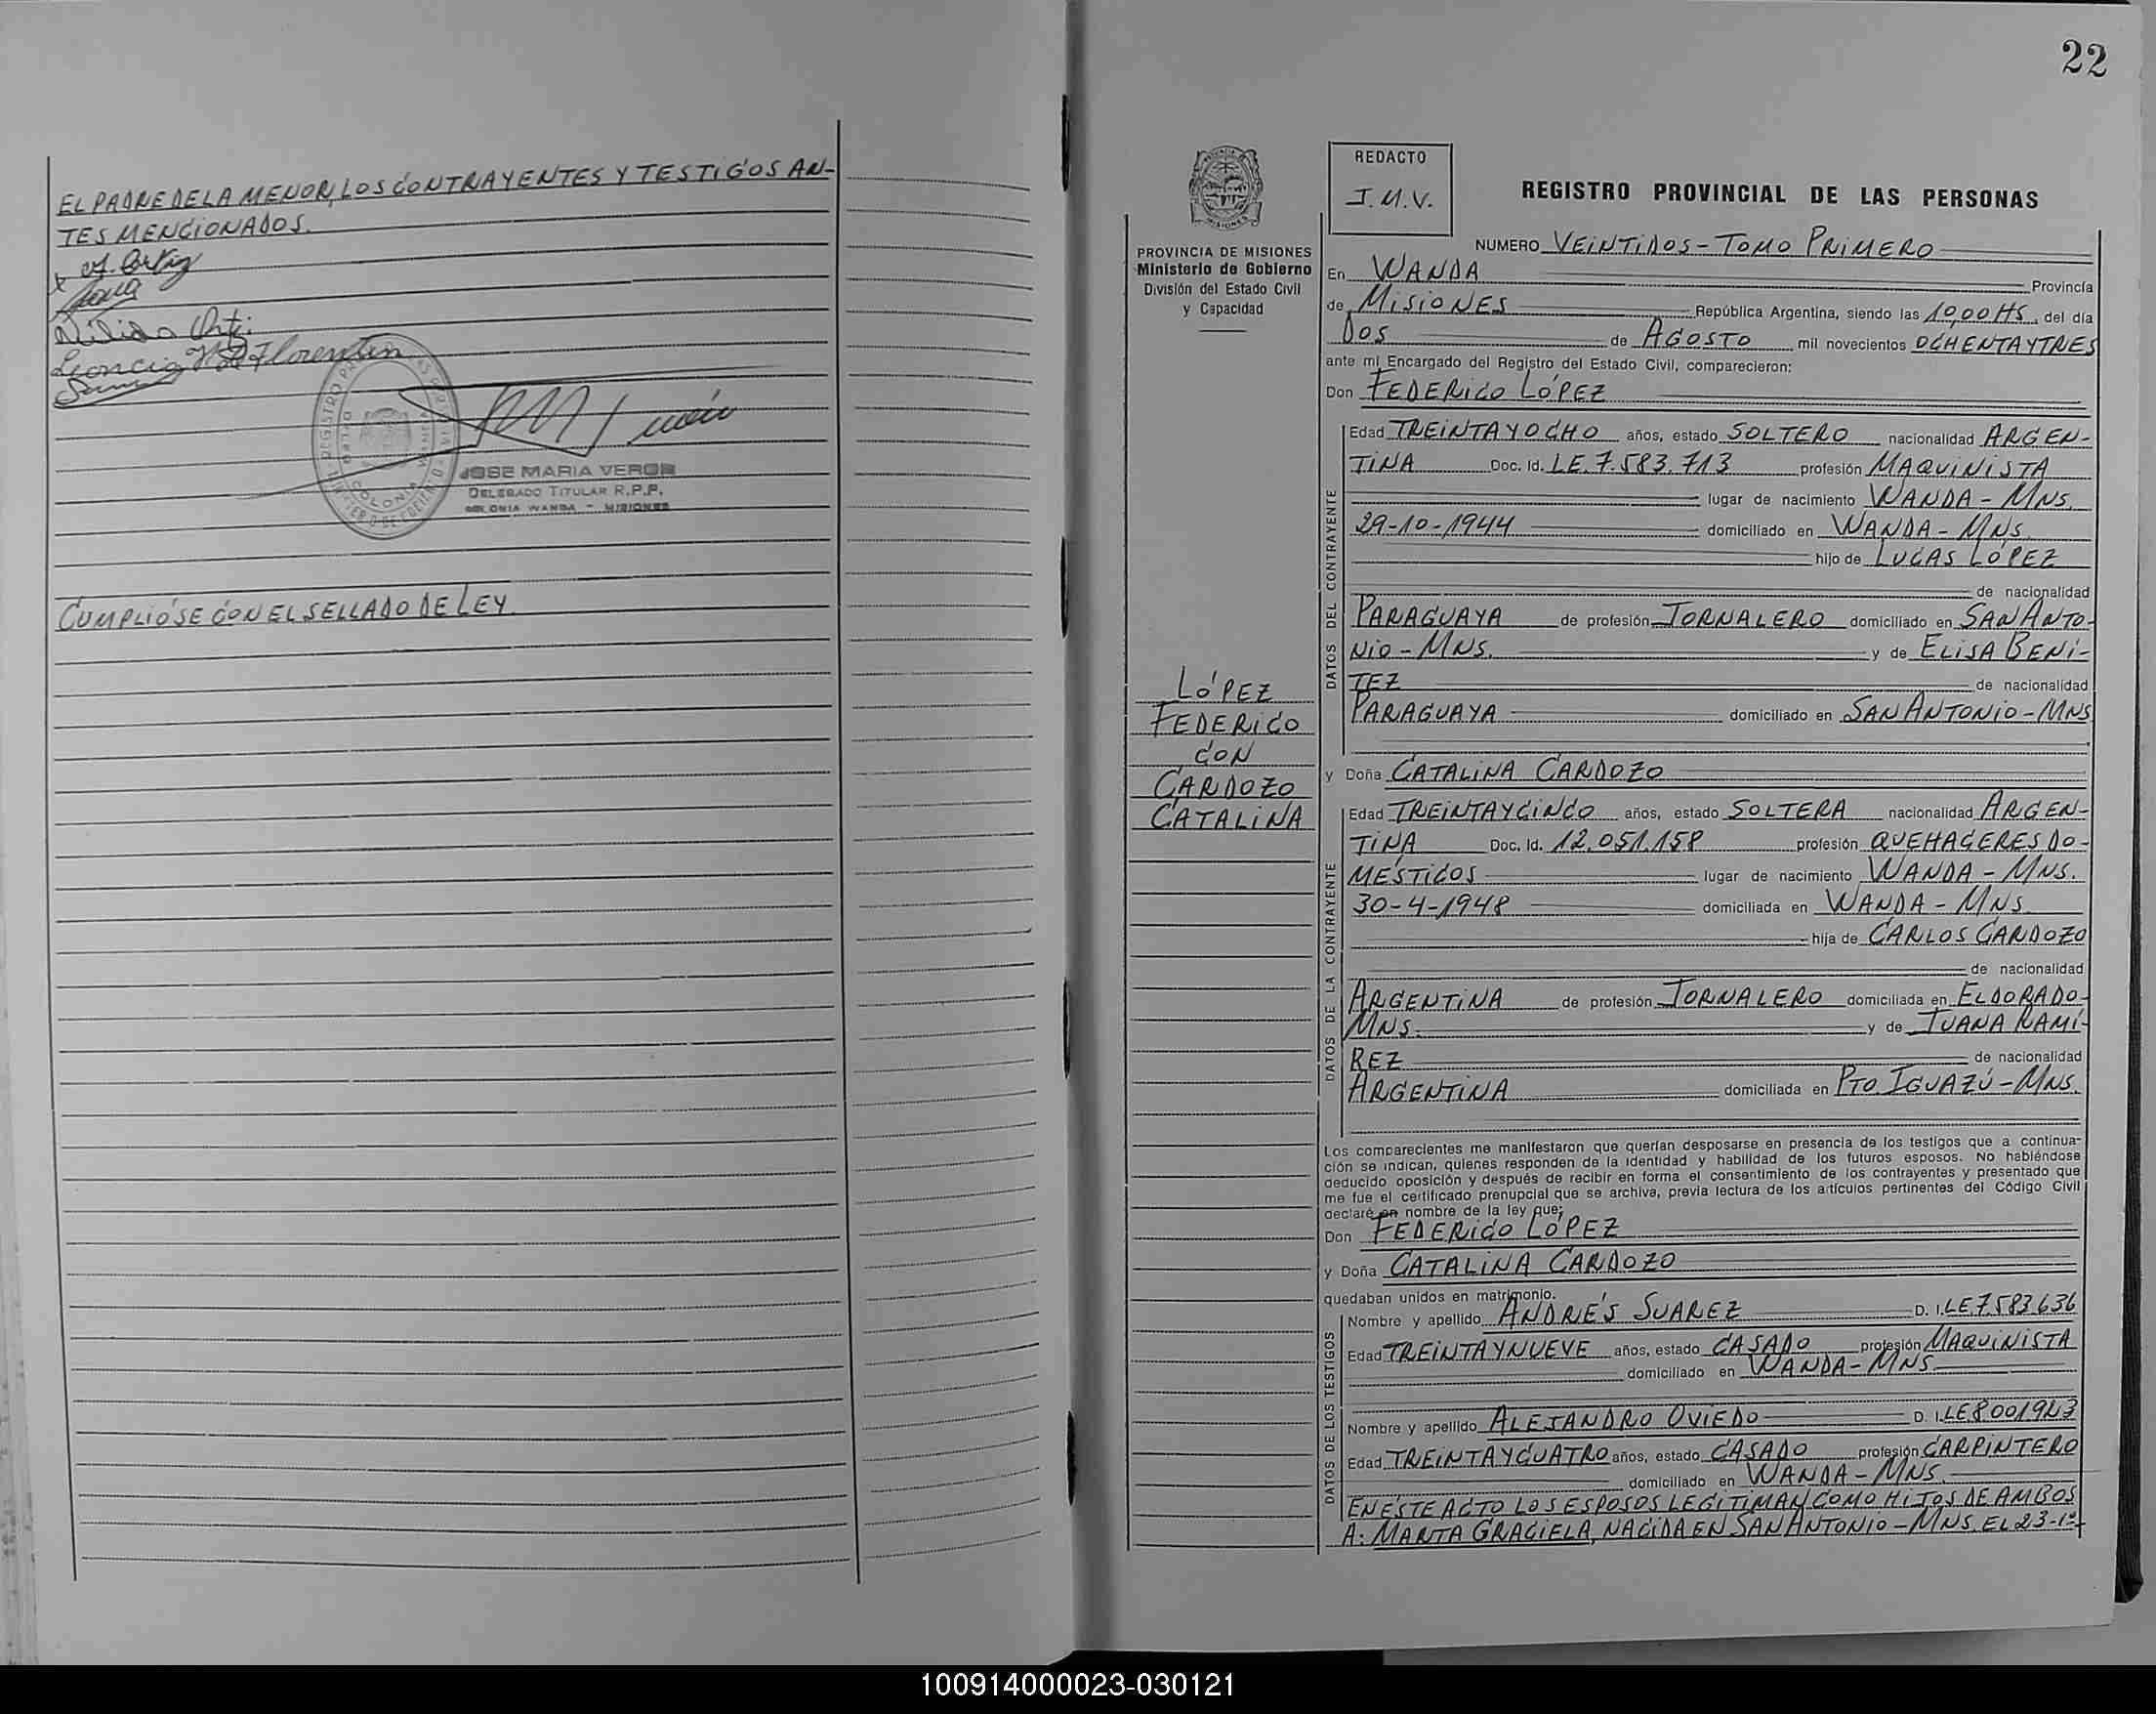 EL PADRE DE LA MENOR, LOS CONTRAYENTES Y TESTIGOS AN-
TES MENCIONADOS.
Leoncio Florentin
JOSE MARIA VERON
DELEGADO TITULAR R.P.P.
COLONIA WANDA - MISIONES
CUMPLIÓSE CON EL SELLADO DE LEY.
22
REDACTO
J.M.V.
REGISTRO PROVINCIAL DE LAS PERSONAS
PROVINCIA DE MISIONES
Ministerio de Gobierno
División del Estado Civil
y Capacidad
LÓPEZ
FEDERICO
CON
CARDOZO
CATALINA
NUMERO VEINTIDOS - TOMO PRIMERO
En WANDA Provincia
de MISIONES República Argentina, siendo las 10,00 HS, del día
DOS de AGOSTO mil novecientos OCHENTA Y TRES
ante mí Encargado del Registro del Estado Civil, comparecieron:
Don FEDERICO LÓPEZ
DATOS DEL CONTRAYENTE
Edad TREINTA Y OCHO años, estado SOLTERO nacionalidad ARGEN-
TINA Doc. Id. LE. 7.583.713 profesión MAQUINISTA
lugar de nacimiento WANDA - MNS.
29-10-1944 domiciliado en WANDA - MNS.
hijo de LUCAS LÓPEZ
de nacionalidad
PARAGUAYA de profesión JORNALERO domiciliado en SAN ANTO-
NIO - MNS. y de ELISA BENÍ-
TEZ de nacionalidad
PARAGUAYA domiciliado en SAN ANTONIO - MNS
y Doña CATALINA CARDOZO
DATOS DE LA CONTRAYENTE
Edad TREINTA Y CINCO años, estado SOLTERA nacionalidad ARGEN-
TINA Doc. Id. 12.051.158 profesión QUEHACERES DO-
MÉSTICOS lugar de nacimiento WANDA - MNS.
30-4-1948 domiciliada en WANDA - MNS.
hija de CARLOS CARDOZO
de nacionalidad
ARGENTINA de profesión JORNALERO domiciliada en ELDORADO-
MNS. y de JUANA RAMÍ-
REZ de nacionalidad
ARGENTINA domiciliada en PTO. IGUAZÚ - MNS.
Los comparecientes me manifestaron que querían desposarse en presencia de los testigos que a continua-
ción se indican, quienes responden de la identidad y habilidad de los futuros esposos. No habiéndose
deducido oposición y después de recibir en forma el consentimiento de los contrayentes y presentado que
me fue el certificado prenupcial que se archiva, previa lectura de los artículos pertinentes del Código Civil
declaré en nombre de la ley que:
Don FEDERICO LÓPEZ
y Doña CATALINA CARDOZO
quedaban unidos en matrimonio.
DATOS DE LOS TESTIGOS
Nombre y apellido ANDRÉS SUAREZ D. I. LE 7.583.636
Edad TREINTA Y NUEVE años, estado CASADO profesión MAQUINISTA
domiciliado en WANDA - MNS.
Nombre y apellido ALEJANDRO OVIEDO D. I. LE 8001943
Edad TREINTA Y CUATRO años, estado CASADO profesión CARPINTERO
domiciliado en WANDA - MNS.
EN ÉSTE ACTO LOS ESPOSOS LEGITIMAN COMO HIJOS DE AMBOS
A: MARTA GRACIELA, NACIDA EN SAN ANTONIO - MNS. EL 23-1º-
100914000023-030121